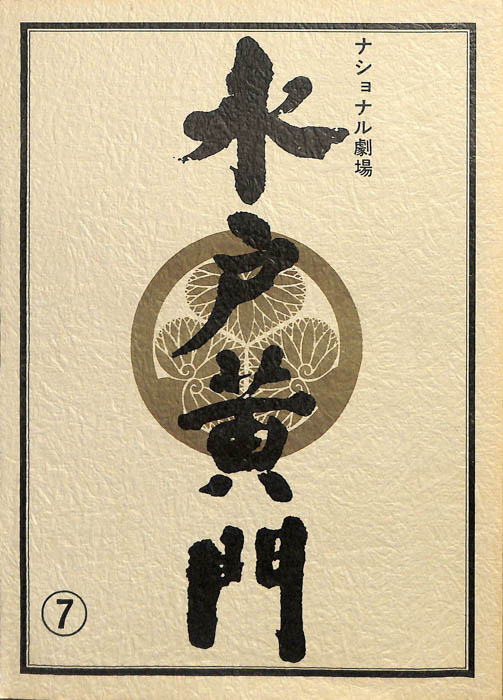 ナショナル劇場
水戸黄門
⑦